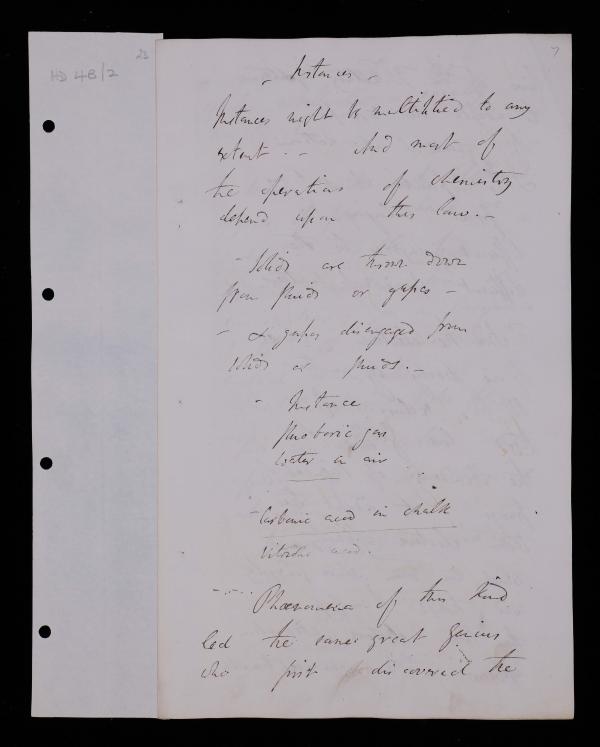 HD 4B/2
23
7
- Instances -
Instances might be multiplied to any
extent. - And most of
the operations of chemistry
depend upon this law. -
- Solids are thrown down
from fluids or gases -
- & gases disengaged from
solids or fluids. -
- Instance
fluoboric gas
water in air
- Carbonic acid in chalk
vitriolic acid.
Phænomena of this kind
led the same great genius
who first discovered the